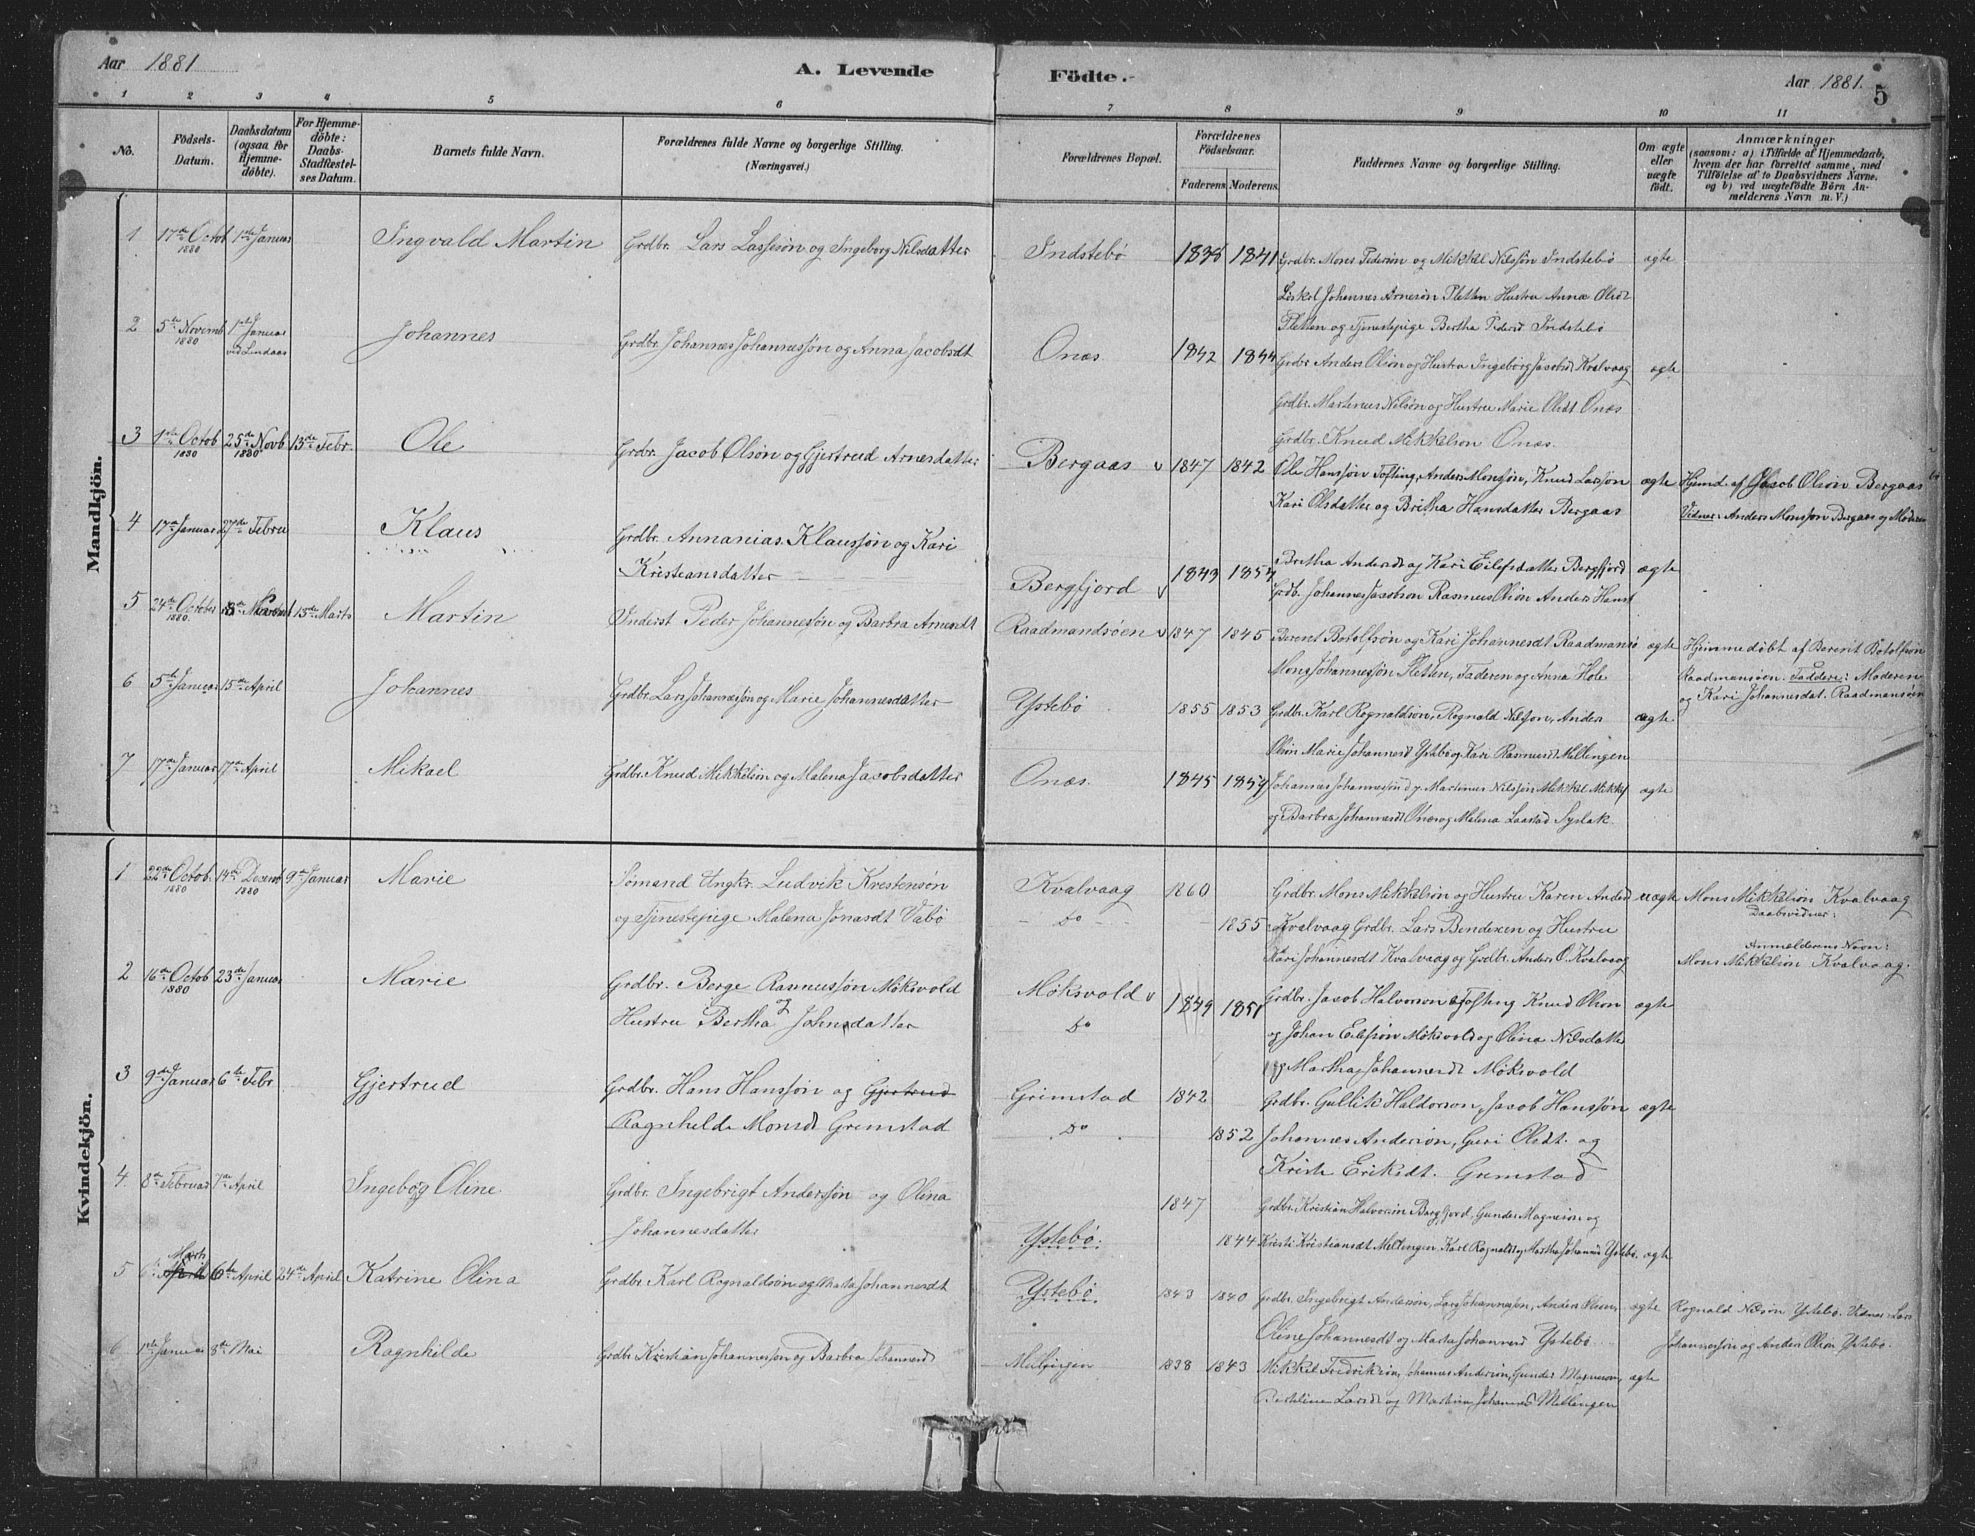 Aar 1881
A. Levende Födte.
Aar 1881.
5
1 2 3 4 5 6 7 8 9 10 11
No.
Födsels-Datum.
Daabsdatum (ogsaa for Hjemme-døbte).
For Hjemme-döbte: Daabs-Stadfæstel-ses Datum.
Barnets fulde Navn.
Forældrenes fulde Navne og borgerlige Stilling. (Næringsvei.)
Forældrenes Bopæl.
Forældrenes Födselsaar.
Faderens. Moderens.
Faddernes Navne og borgerlige Stilling.
Om ægte eller uægte födt.
Anmærkninger
(saasom: a) i Tilfælde af Hjemmedaab, hvem der har forrettet samme, med Tilföielse af to Daabsvidners Navne, og b) ved uægtefödte Börn An-melderens Navn m. V.)
Mandkjön.
1 17de Octob 1880 1ste Januar Ingvald Martin Grdbr. Lars Lassesøn og Ingeborg Nilsdatter Indstebø 1838 1841 Grdbr. Mons Pedersøn og Mikkel Nilssøn Indstebø ægte
Löskrl Johannes Arnesøn Fletten Hustru Anna Olsdt
Fletten og Tjenestepige Bertha Pedersd Indstebø
2 5te Novemb 1880 1ste Januar ved Lindaas Johannes Grdbr. Johannes Johannessøn og Anna Jacobsdt Onæs. 1842 1844 Grdbr Anders Olsøn og Hustru Ingeborg Jacobsd Kvalvaag ægte
Grdbr. Martinus Nilsøn og Hustru Marie Olsdt Onæs
Grdbr. Knud Mikkelsøn Onæs.
3 1ste Octob 1880 25de Novb 1880 13de Febr. Ole Grdbr. Jacob Olsøn og Gjertrud Arnesdatter Bergaas 1847 1842 Ole Hanssøn Tofting, Anders Monssøn, Knud Larssøn ægte Hjemd. af Jacob Olsøn Bergaas
Kari Olsdatter og Britha Hansdatter Bergaas Vidner: Anders Monssøn Bergaas og Moderen
4 17de Januar 27de Febru Klaus Grdbr. Annanias Klaussøn og Kari
Kristiansdatter Bergfjord 1849 1857 Bretha Andersd og Kari Eilefsdatter Bergfjord ægte
Grdb. Johannes Jacobsøn Rasmus Olsøn Anders Hanst
5 24de October 1880. 13de Marts Martin Inderst Peder Johannessøn og Barbra Arnesdt Raadmandsöen 1847 1845 Berent Botolfsøn og Kari Johannesdt Raadmansø ægte Hjemmedøbt af Berent Botolfsøn
Mons Johannessøn Fletten, Faderen og Anna Hole Raadmansøen. Faddere: Moderen
og Kari Johannesdat. Raadmansøen
6 5te Januar 15de April Johannes Grdbr. Lars Johannessøn og Marie Johannesdatter Ystebø 1855 1853 Grdbr. Karl Rognaldsøn, Rognald Nilsøn, Anders ægte
Olsøn Marie Johannesd Ystebø og Kari Rasmusd Mellingen
7 17de Januar 17de April Mikael Grdbr. Knud Mikkelsøn og Malena Jacobsdatter Onæs. 1845 1859 Johannes Johannessøn og Martinus Nilssøn Mikkel Mikkels ægte
og Barbra Johannesdt Onæs og Malena Laastad Syslak
Kvindekjön.
1 22de Octob. 1880 14de Decemb 1880 9de Januar Marie Sømand Ungkr. Ludvik Kristensøn Kvalvaag 1860 Grdbr. Mons Mikkelsøn og Hustru Karen Andersd uægte Mons Mikkelsøn Kvalvaag
og Tjenestepige Malena Jonasdt Vabø - Do - 1855 Kvalvaag Grdbr. Lars Bendixen og Hustru Daabsvidner:
Kari Johannesdt Kvalvaag og Grdbr. Anders O. Kvalvaag Anmelderens Navn:
Mons Mikkelsøn Kvalvaag.
2 16de Octob 1880 23de Januar Marie Grdbr. Berge Rasmussøn Møksvold Møksvold 1849 1851 Grdbr. Jacob Halvorson Tofting Knud Olson ægte
Hustru Bertha Johnsdatter Do og Johan Eilefsøn Møksvold og Olina Nilsdatter
og Martha Johannesdt Møksvold
3 9de Januar 6te Febr Gjertrud Grdbr. Hans Hanssøn og Gjertrud Grimstad 1842 Grdbr. Gullik Haldorson, Jacob Hanssøn ægte
Ragnhilde Monsd Gremstad Do 1852 Johannes Andersøn, Guri Olsdt. og
Kriste Eriksdt. Grimstad
4 8de Februar 7de April Ingeborg Oline Grdbr. Ingebrigt Anderssøn og Olina 1847 Grdbr. Kristian Halvorsøn Bergfjord, Gunder Magnesøn og
Johannesdatter Ystebø. 1844 Kristi Kristiansdt Mellingen Karl Rognalds og Martha Johannes Ystebø. ægte
5 6te April Marts 6te April 24de April Katrine Olina Grdbr Karl Rognaldsøn og Marta Johannesdt Ystebø 1843 1840 Grdbr. Ingebrigt Andersøn, Lars Johannessøn, Anders Olsøn, ægte Rognald Nilsøn Ystebø. Vidner: Lars
Oline Johannesdt og Marta Johannesd Ystebø. Johannessøn og Anders Olsøn Ystebø.
6 1ste Januar 8de Mai Ragnhilde Grdbr Kristian Johannessøn og Barbra Johannesd Mellingen 1838 1843 Mikkel Fredriksøn, Johannes Andersøn, Gunder Magnesøn, ægte
Berteline Larsd og Martina Johannesd Mellingen